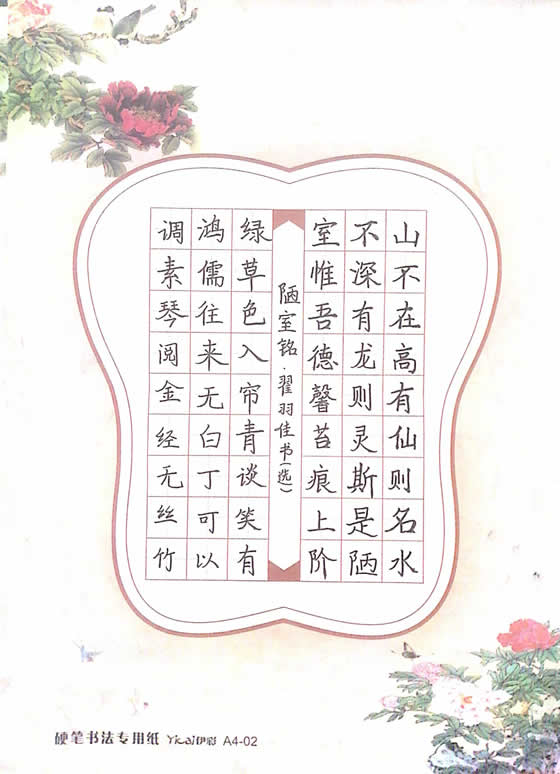 山不在高有仙则名水
不深有龙则灵斯是陋
室惟吾德馨苔痕上阶
陋室铭·翟羽佳书(选)
绿草色入帘青谈笑有
鸿儒往来无白丁可以
调素琴阅金经无丝竹
硬笔书法专用纸 Yicai伊彩 A4-02